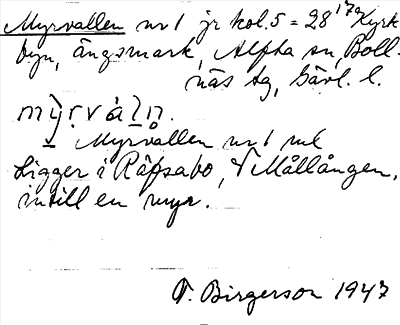 Myrvallen nr 1 jr kol. 5 = 28 17a Kyrk
byn, ängsmark, Alfta sn, Boll-
näs tg, Gävl. l.
mȳrvàl̥n.
Myrvallen nr 1 ml
Ligger i Räfsabo, V Mållången,
intill en myr.
V. Birgerson 1947